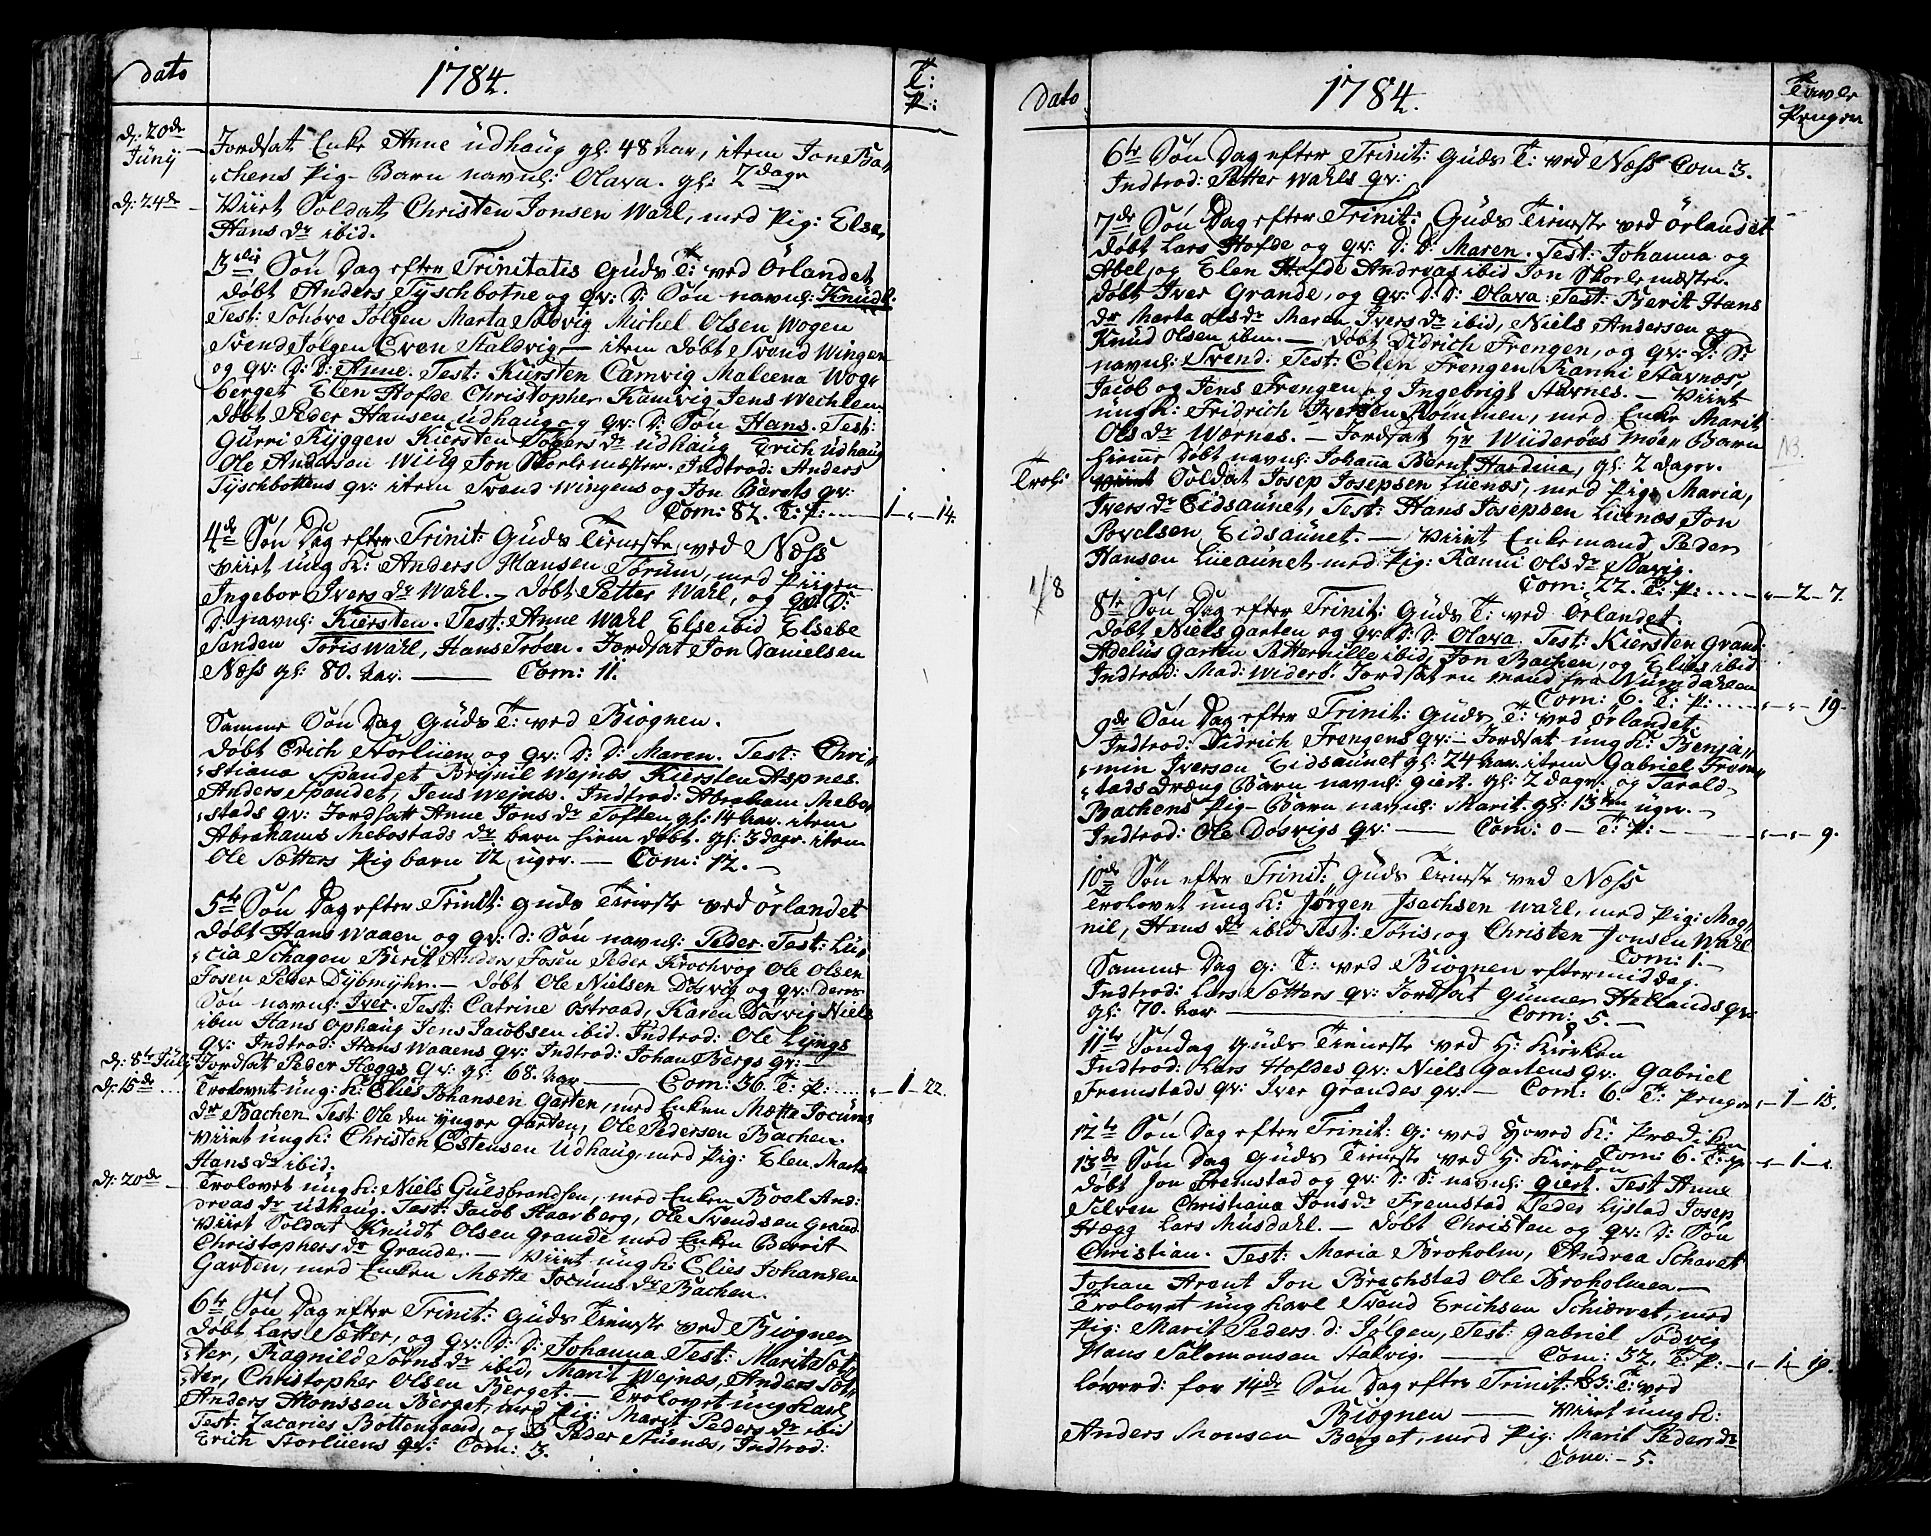 Dato 1784. T: P:
d: 20de Junij Jordsat Enke Anne Udhaug gl: 48 Aar, item Jon Ba,
chens Pig-Barn navnl: Olava. gl: 7 dage
d: 24de Viiet Soldat Christen Jonsen Wahl, med Pig: Else,
Hans dr ibid.
3die Søn Dag efter Trinitatis Guds T: ved Ørlandet,
døbt Anders Tyschbotne og qv: D: Søn navnl: Knudt:
Test: Tholve Jølgen Marta Sødvig Michel Olsen Wogen
Svend Jølgen Even Staldvig — item døbt Svend Wingen
og qv: D: D: Anne. Test: Kiersten Camvig Maleena Wog,
berget Elen Hofde Christopher Kamvig Jens Wechlem.
døbt Peder Hansen Udhaug og qv: D: Søn Hans. Test:
Gurri Ryggen Kiersten Solgers dr Udhaug Erich Udhaug
Ole Andersen Wiilg Jon Skolemæster. Indtrod: Anders
Tyschbottens qv: item Svend Wingens og Jon Barets qv:
Com: 82. T: P: — 1 „ 14.
4de Søn Dag efter Trinit: Guds Tieneste ved Næss
Viiet ung K: Anders Hansen Torum, med Piigen
Ingebor Ivers dr Wahl. – døbt Petter Wahl, og qv: D:
D: navnl: Kiersten. Test: Anne Wahl Else ibid Elsebe
Sanden Toris Wahl, Hans Trøen. Jordsat Jon Danielsen
Næss gl: 80. Aar. — Com: 11.
Samme Søn Dag Guds T: ved Biognen.
døbt Erich Storliien og qv: D: D: Maren. Test: Chri,
stiana Spandet Brynil Wejnæs Kiersten Aspnes.
Anders Spandet, Jens Wejnæs. Indtrod: Abraham Mebo,
stads qv: Jordsatt Anne Jons dr Toften gl: 14 Aar. item
Abrahams Mebostads dr barn hiem døbt. gl: 3 dage. item
Ole Sætters Pig barn 12 uger. — Com: 12.
5te Søn Dag efter Trinit: Guds Tieneste ved Ørlandet
døbt Hans Waaen og qv: D: Søn navnl: Peder. Test: Lu,
cia Schagen Berit Anders Josen Peder Krochvog Ole Olsen
Josen Peder Dybmyhr. — døbt Ole Nielsen Døsvig og qv: deres
Søn navnl: Iver. Test: Catrine Østraad, Karen Døsvig Niels
ibm Hans Ophaug Jens Jacobsen ibid. Indtrod: Ole Lyngs
qv: Indtrod: Hans Waaens qv: Indtrod: Johan Bergs qv: —
d: 8te Julij Jordsat Peder Hæggs qv: gl: 68. Aar — Com: 36. T: P: .... „ 1 – 22.
d: 15de .... Trolovet ung: K: Elies Johansen Garten, med Enken Mætte Jocums
dr Bachen Test: Ole den yngre Garten, Ole Pedersen Bachen.
Viiet ung K: Christen Estensen Udhaug, med Pig: Elen Marta
Hans dr ibid.
d: 20de – Trolovet ung K: Niels Guldbrandsen, med Enken Boel And:
dreas dr Udhaug. Test: Jacob Haarberg, Ole Svendsen Grand.
Viiet Soldat Knudt Olsen Grande med Enken Berrit
Christophers dr Grande. — Viiet ung K: Elies Johansen
Garten, med Enken Mætte Jocums dr Bachen.
6te Søn Dag efter Trinit: Guds Tieneste ved Biognen
døbt Lars Sætter, og qv: D: D: Johanna Test: Marit Sæt,
ter, Ragnild Sørns dr ibid, Marit Wejnæs, Anders Sæt,
ter, Christopher Olsen Berget. — Trolovet ung Karl
Anders Monssen Berget, med Pig: Marit Peders dr ibid
Test: Zacaries Bottengaard, og Peder Stuenæs, Indtrod:
Erich Storliiens qv: Com: 3.
Dato 1784. Tavle Pengen
6te Søn Dag efter Trinit: Guds T: ved Næss Com 3.
Indtrod: Petter Wahls qv:
7de Søn Dag efter Trinit: Guds Tieneste ved Ørlandet
døbt Lars Hofde og qv: D: D: Maren. Test: Johanna og
Abel, og Elen Hofde Andreas ibid Jon Skolemæster.
døbt Iver Grande, og qv: D: D: Olava. Test: Berit Hans
dr Marta Ols dr Maren Ivers dr ibid, Niels Andersen og
Knud Olsen ibm. — døbt Didrich Frengen, og qv: D: S:
navnl: Svend. Test: Elen Frengen Ranni Stavnæs,
Jacob og Jens Frengen og Ingebrigt Stavnes. — Viiet
ung K: Fridrich Iversen Rømmen, med Enke Marit
Ols dr Wærnes. — Jordsat Hr Wiiderøes Moer Barn
hieme døbt navnl: Johanna Bernt Hardina, gl: 2 dager.
Trol: Viiet Soldat Josep Josepsen Luenæs, med Pig: Maria,
Ivers dr Eidsaunet, Test: Hans Josepsen Luenæs Jon
Povelsen Eidsaunet. — Viiet Enkemand Peder
Hansen Lueaunet med Pig: Ranni Ols dr Slavig.
Com: 22. T: P: .... „ 2 – 7.
1/8 8te Søn Dag efter Trinit: Guds T: ved Ørlandet.
døbt Niels Garten og qv: D: D: Olava. Test: Kiersten Grand:
Adelus Garten Petternille ibid, Jon Bachen, og Elies ibid
Indtrod: Mad: Widerø. Jordsat en Mand fra Numdahlen
Com: 6. T: P: .... „ „ 19
9de Søn Dag efter Trinit: Guds T: ved Ørlandet
Indtrod: Didrich Frengens qv: — Jordsat ung K: Benja,,
min Iversen Eidsaunet gl: 24 Aar. item Gabriel Frem,
stads Dræng Barn navnl: Giert. gl: 2 dage. og Tarald
Bachens Pig-Barn navnl: Marit. gl: 13 ten uger. —
Indtrod: Ole Døsvigs qv: — Com: 0 – T: P: — „ „ 9.
10de Søn efter Trinit: Guds Tieneste ved Næss
Trolovet ung K: Jørgen Isachsen Wahl, med Pig: Mag,,
nil, Hans dr ibid Test: Toris, og Christen Jonsen Wahl
Com: 1. –
Samme Dag G: T: ved Biognen eftermiddag.
Indtrod: Lars Sætters qv: Jordsat Gunner Hellands qv:
gl: 70. Aar — Com: 5. —
11te Søndag Guds Tieneste ved H: Kirken
Indtrod: Lars Hofdes qv: Niels Gartens qv: Gabriel
Fremstads qv: Iver Grandes qv: — Com: 6. T: Pengen „ 1 – 15.
12te Søn Dag efter Trinit: G: ved Hoved K: Prædiken
Com: 6. T: P „ 1 – „
13de Søn Dag Guds Tieneste ved H: Kirken
døbt Jon Fremstad og qv: D: S: navnl: Giert. Test Anne
Selven Christiana Jons dr Fremstad Peder Lystad Josep
Hægg Lars Musdahl. — døbt Christen og qv: D: Søn
Christian. Test: Maria Broholm, Andrea Scharet
Johan Arent Jon Brechstad Ole Broholmen —
Trolovet ung Karl Svend Erichsen Schiørvet, med
Pig: Marit Peders D: Jølgen, Test: Gabriel Sødvig
Hans Salomonsen Stalvig. — Com: 32. T: P: – „ 1 – 19.
Løverd: for 14de Søn Dag efter Trinit: G: T: ved
Biognen — Viiet ung K:
Anders Monsen Berget, med Pig: Marit Peders dr
Com: – 5.